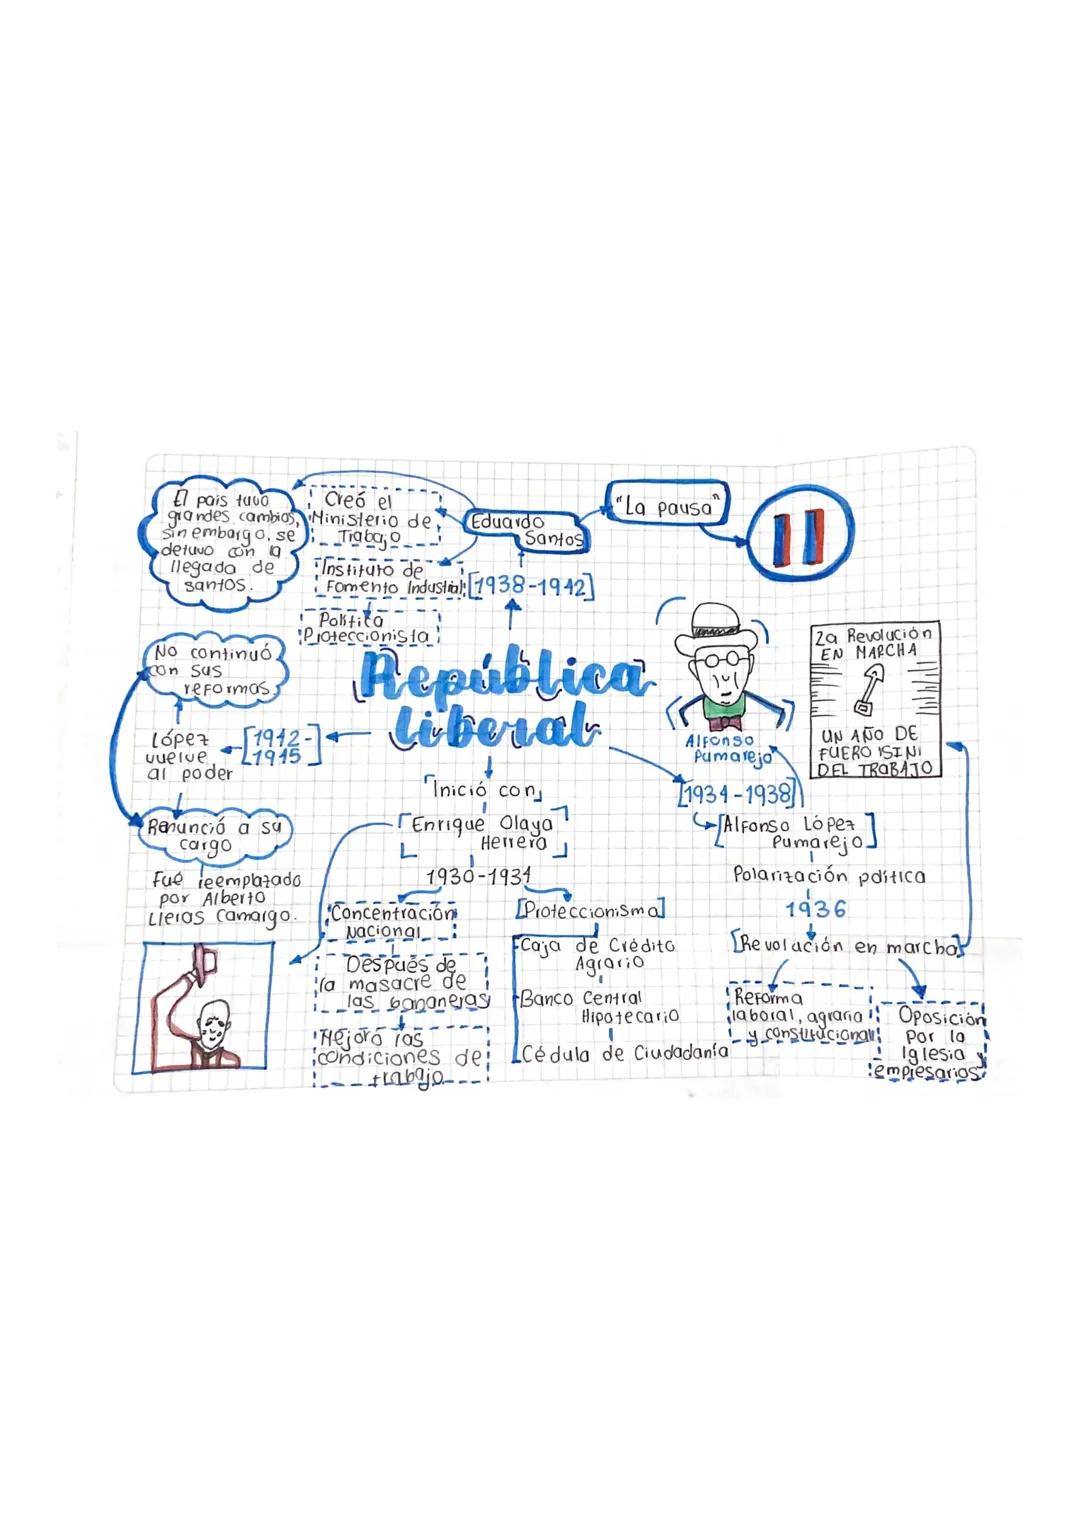 El pais tuvo
grandes cambios,
sin embargo, se
detuvo con la
llegada de
santos.
Creó el
Ministerio de
Trabajo
Instituto de
Fomento Industrial
Política
Proteccionista
Eduardo
Santos
[1938-1942]
"La pausa"
República
liberal
No continuó
con sus
reformas
López
vuelve
al poder
[1942-]
[1945]
Renunció a su
cargo
Fué reemplazado
por Alberto
Lleras Camargo.
Inició con
Enrique Olaya
Herrero
1930-1934
Concentración
Nacional
Después de
la masacre de
las bananeras
Mejoró las
condiciones de
trabajo
[Proteccionismo]
Caja de Crédito
Agrario
Banco Central
Hipotecario
Cédula de Ciudadanía
Alfonso
Pumarejo
[1934-1938]
[Alfonso López
Pumarejo]
Polarización política
1936
[Revolución en marcha]
Reforma
laboral, agraria
y constitucional
Oposición
por la
Iglesia y
empresarios
2a Revolución
EN MARCHA
UN AÑO DE
FUERO ¡SINI
DEL TRABAJO